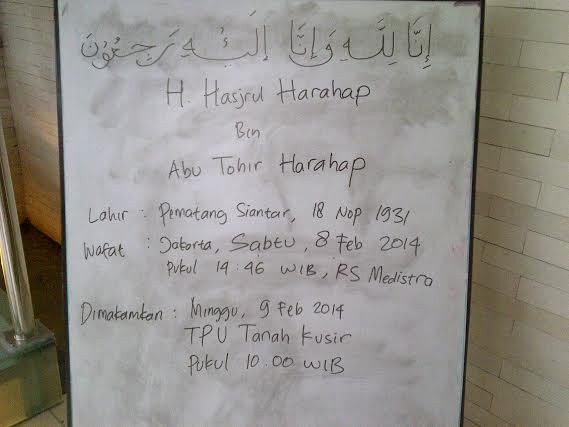 إِنَّا لِلَّهِ وَإِنَّا إِلَيْهِ رَاجِعُوْنَ
H. Hasjrul Harahap
Bin
Abu Tohir Harahap
Lahir : Pematang Siantar, 18 Nop 1931
Wafat : Jakarta, Sabtu, 8 Feb 2014
Pukul 14:46 WIB, RS Medistra
Dimakamkan : Minggu, 9 Feb 2014
TPU Tanah Kusir
Pukul 10.00 WIB